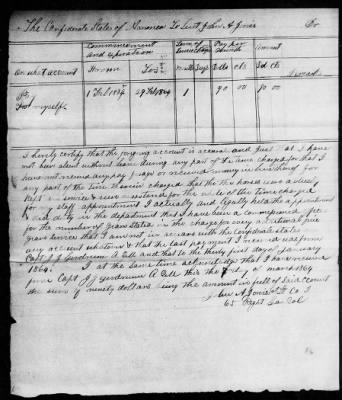 The Confederate States of America To Lieut John A Jones Dr
Commencement and Expiration
Term of Service
Pay per Month
Amount
On what account From To Months Days Dolls cts Dolls cts
Pay
For myself 1 Feb 1864 29 Feb 1864 1 90 00 90 00
I hereby certify that the foregoing account is accurate and just that I have
not been absent without leave during any part of the time charged for that I
have not received any pay forage or received money in lieu thereof for
any part of the time therein charged that the horse was actually
kept in service and mustered for the whole of the time charged
for my staff appointment I actually and legally held the appointment
and did duty in the department that I have been a commissioned officer
for the number of years stated in the charge for every additional five
years service that I am not in arrears with the Confederate States
any account whatever & that the last payment I received was from
Capt J J A Q M and that to the thirty first day of January
1864. I at the same time acknowledge that I have received
from Capt J J A Q M this the day of March 1864
the sum of ninety dollars being the amount in full of said account
John A Jones Lt Co I
65 Regt Ga Vol